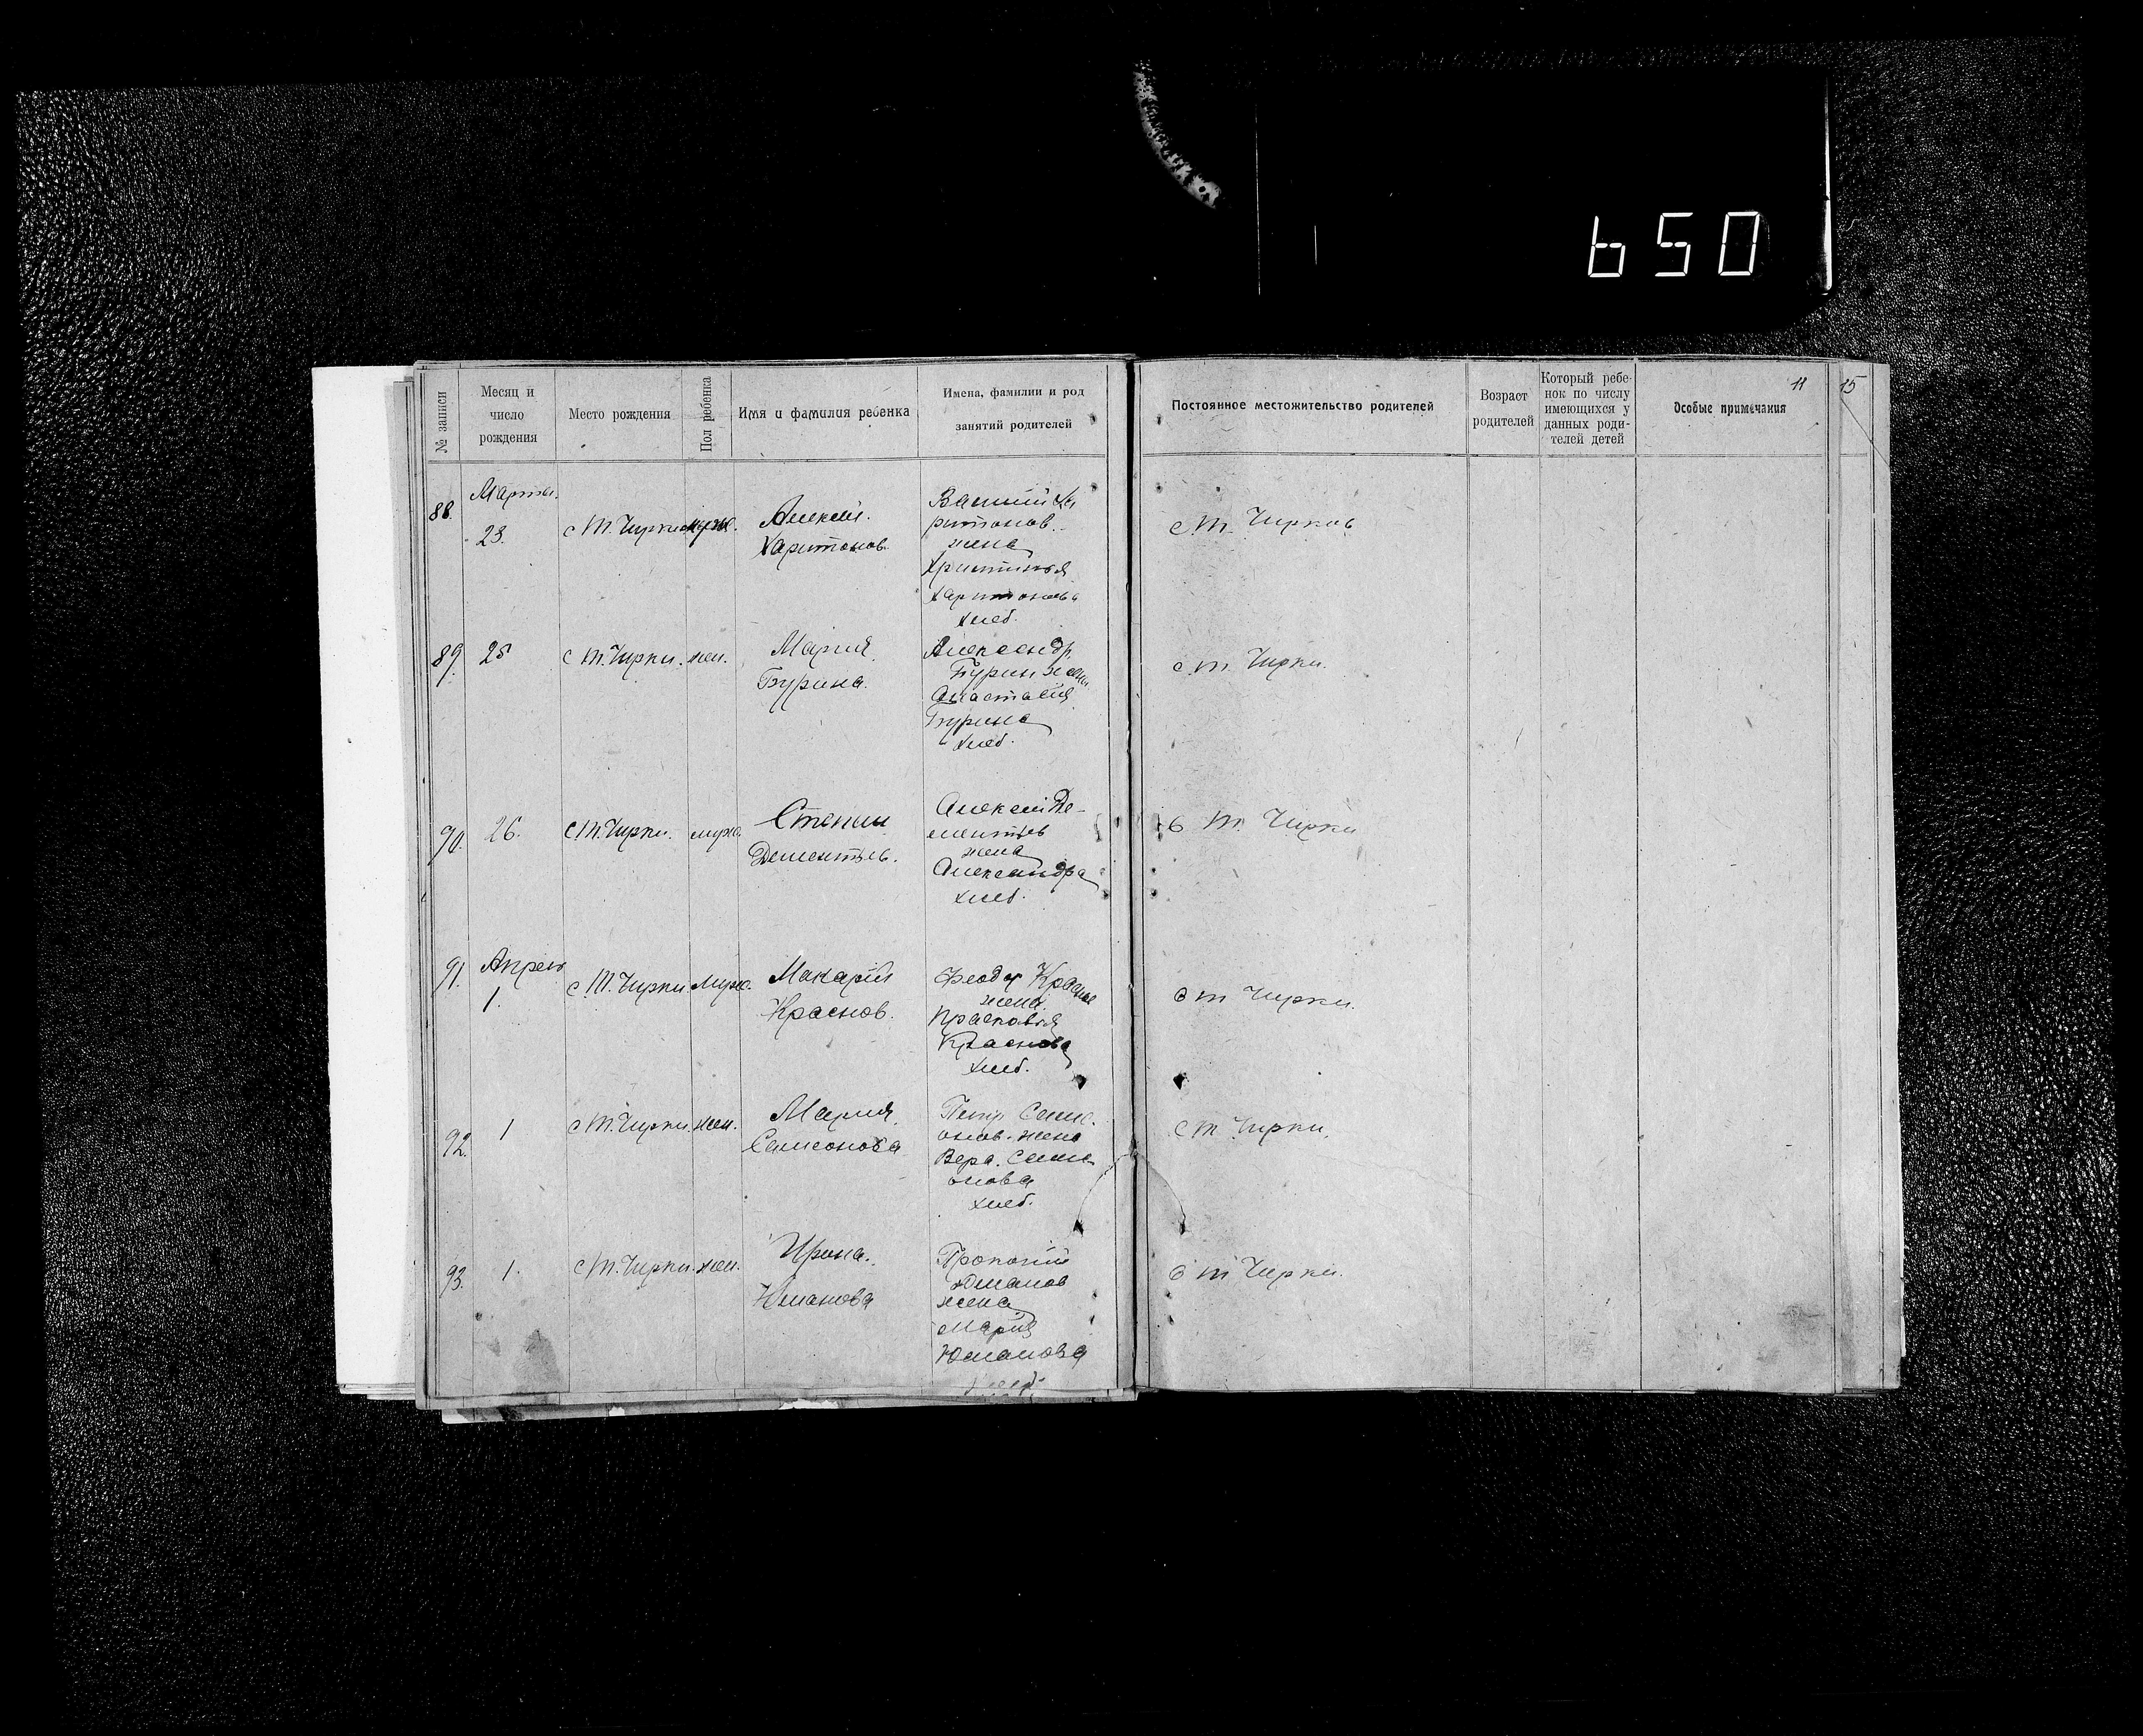 650
№ записи
Месяц и
число
рождения
Место рождения
Пол ребенка
Имя и фамилия ребенка
Имена, фамилии и род
занятий родителей
Постоянное местожительство родителей
Возраст
родителей
Который ребе-
нок по числу
имеющихся у
данных роди-
телей детей
Особые примечания
11
15
88.
Марта.
23.
с Т. Чирки
муж.
Алексей.
Харитонов.
Василий Ха
ритонов.
жена
Христинья
Харитонова
хлеб.
с. Т. Чирков
89.
25
с Т. Чирки.
жен.
Мария
Бурина.
Александр.
Бурин жена
Анастасия
Бурина
хлеб.
с. Т. Чирки.
90.
26.
с Т. Чирки.
муж.
Степан
Дементьев.
Алексей Де-
ментьев
жена
Александра
хлеб.
с Т. Чирки
91.
Апрель
1.
с Т. Чирки.
муж.
Макарий
Краснов.
Феодор Краснов
жена
Прасковья
Краснова
хлеб.
с Т Чирки.
92.
1
с Т. Чирки.
жен.
Мария.
Самсонова
Петр Самс.
онов. жена
Вера. Самс
онова
хлеб.
с Т Чирки.
93.
1.
с Т. Чирки.
жен.
Ирина.
Юманова
Прокопий
Юманов
жена
Мария
Юманова
хлеб.
с Т Чирки.